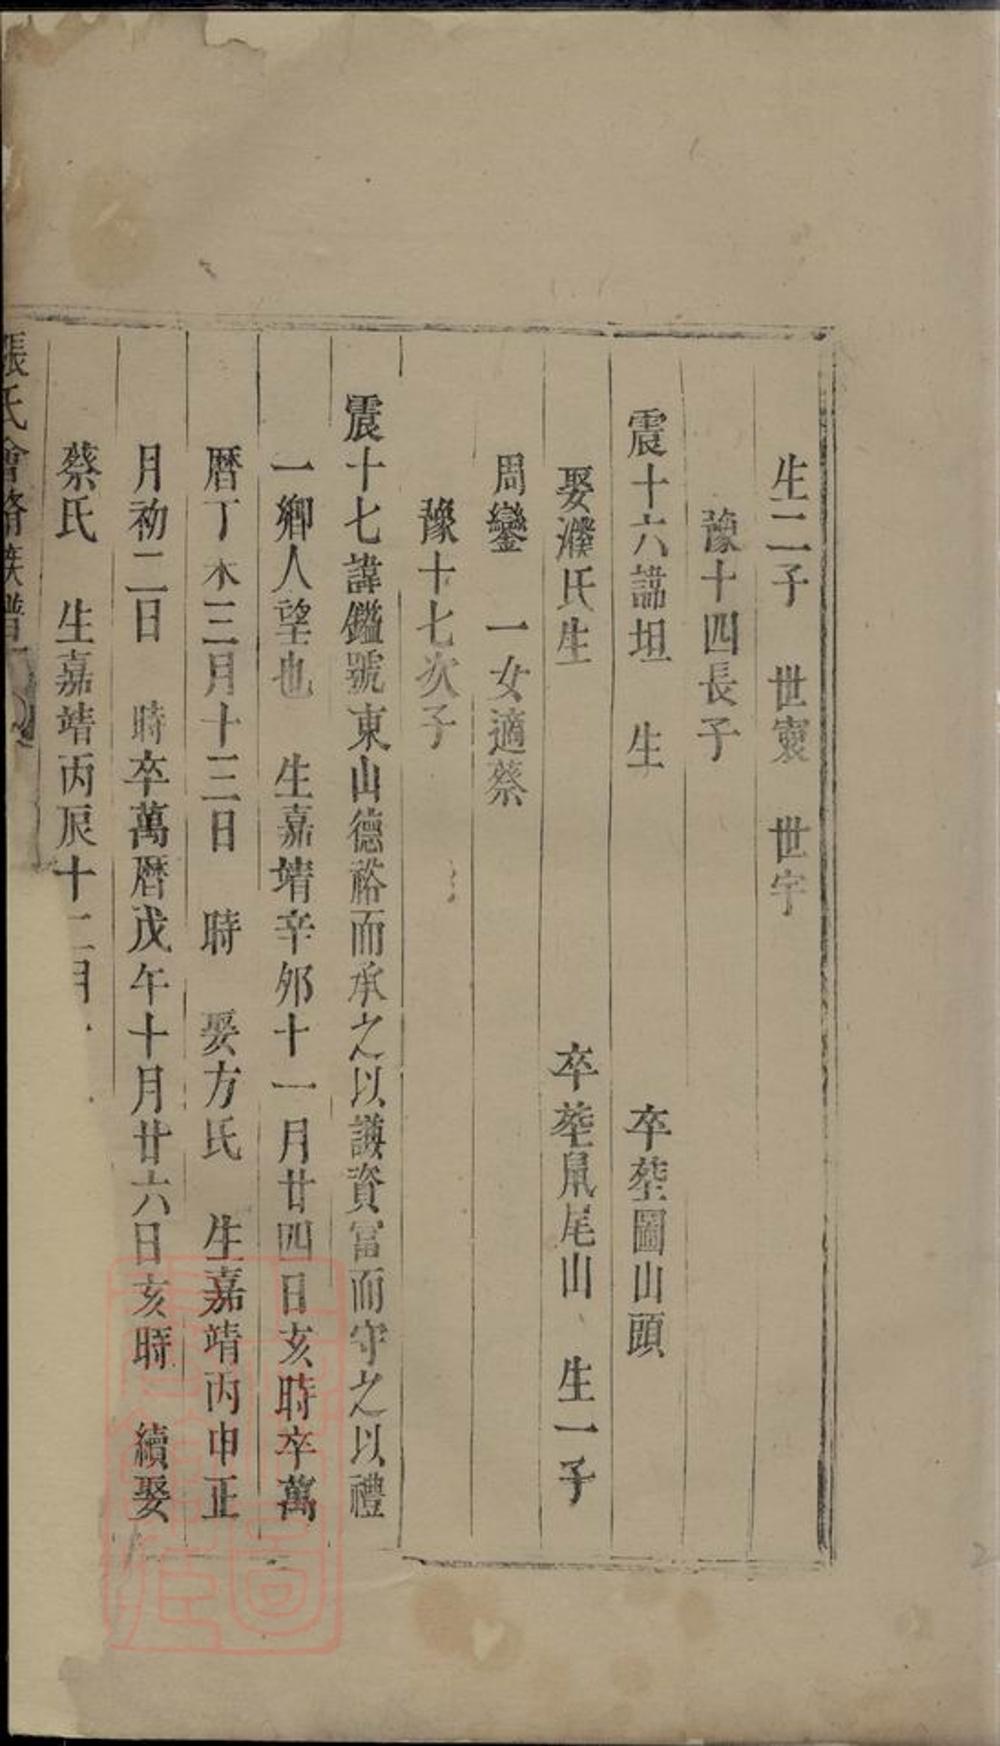 生二子 世寰 世宇
豫十四長子
震十六諱坦 生 卒塟圖山頭
娶濮氏生 卒塟鼠尾山 生一子
周鑾 一女適蔡
豫十七次子
震十七諱鑑號東山德裕而承之以謙資冨而守之以禮
一鄉人望也 生嘉靖辛夘十一月廿四日亥時卒萬
曆丁未三月十三日 時 娶方氏 生嘉靖丙申正
月初二日 時卒萬曆戊午十月廿六日亥時 續娶
蔡氏 生嘉靖丙辰十二月
張氏會脩族譜